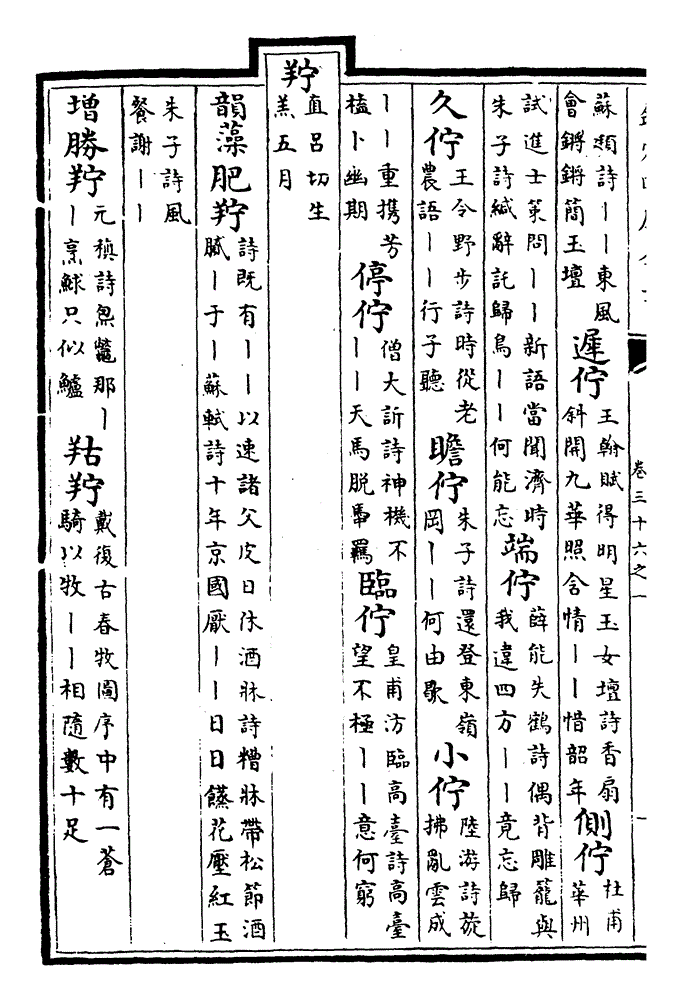 卷三十六之一
蘇頲詩丨丨東風
會鏘鏘簡玉壇
遲佇
王翰賦得明星玉女壇詩香扇
斜開九華照含情丨丨惜韶年
側佇
杜甫
華州
試進士策問丨丨新語當聞濟時
朱子詩緘辭託歸鳥丨丨何能忘
端佇
薛能失鶴詩偶背雕籠與
我違四方丨丨竟忘歸
久佇
王令野步詩時從老
農語丨丨行子聽
瞻佇
朱子詩還登東嶺
岡丨丨何由歇
小佇
陸游詩旋
拂亂雲成
丨丨重携芳
榼卜幽期
停佇
僧大訢詩神機不
丨丨天馬脫馽羈
臨佇
皇甫汸臨高臺詩高臺
望不極丨丨意何窮
羜
直呂切生
羔五月
韻藻肥羜
詩既有丨丨以速諸父皮日休酒牀詩糟牀帶松節酒
膩丨于丨蘇軾詩十年京國厭丨丨日日花壓紅玉
朱子詩風
餐謝丨丨
增勝羜
元稹詩炰鼈那丨
丨烹鯄只似鱸
羜
戴復古春牧圖序中有一蒼
騎以牧丨丨相隨數十足